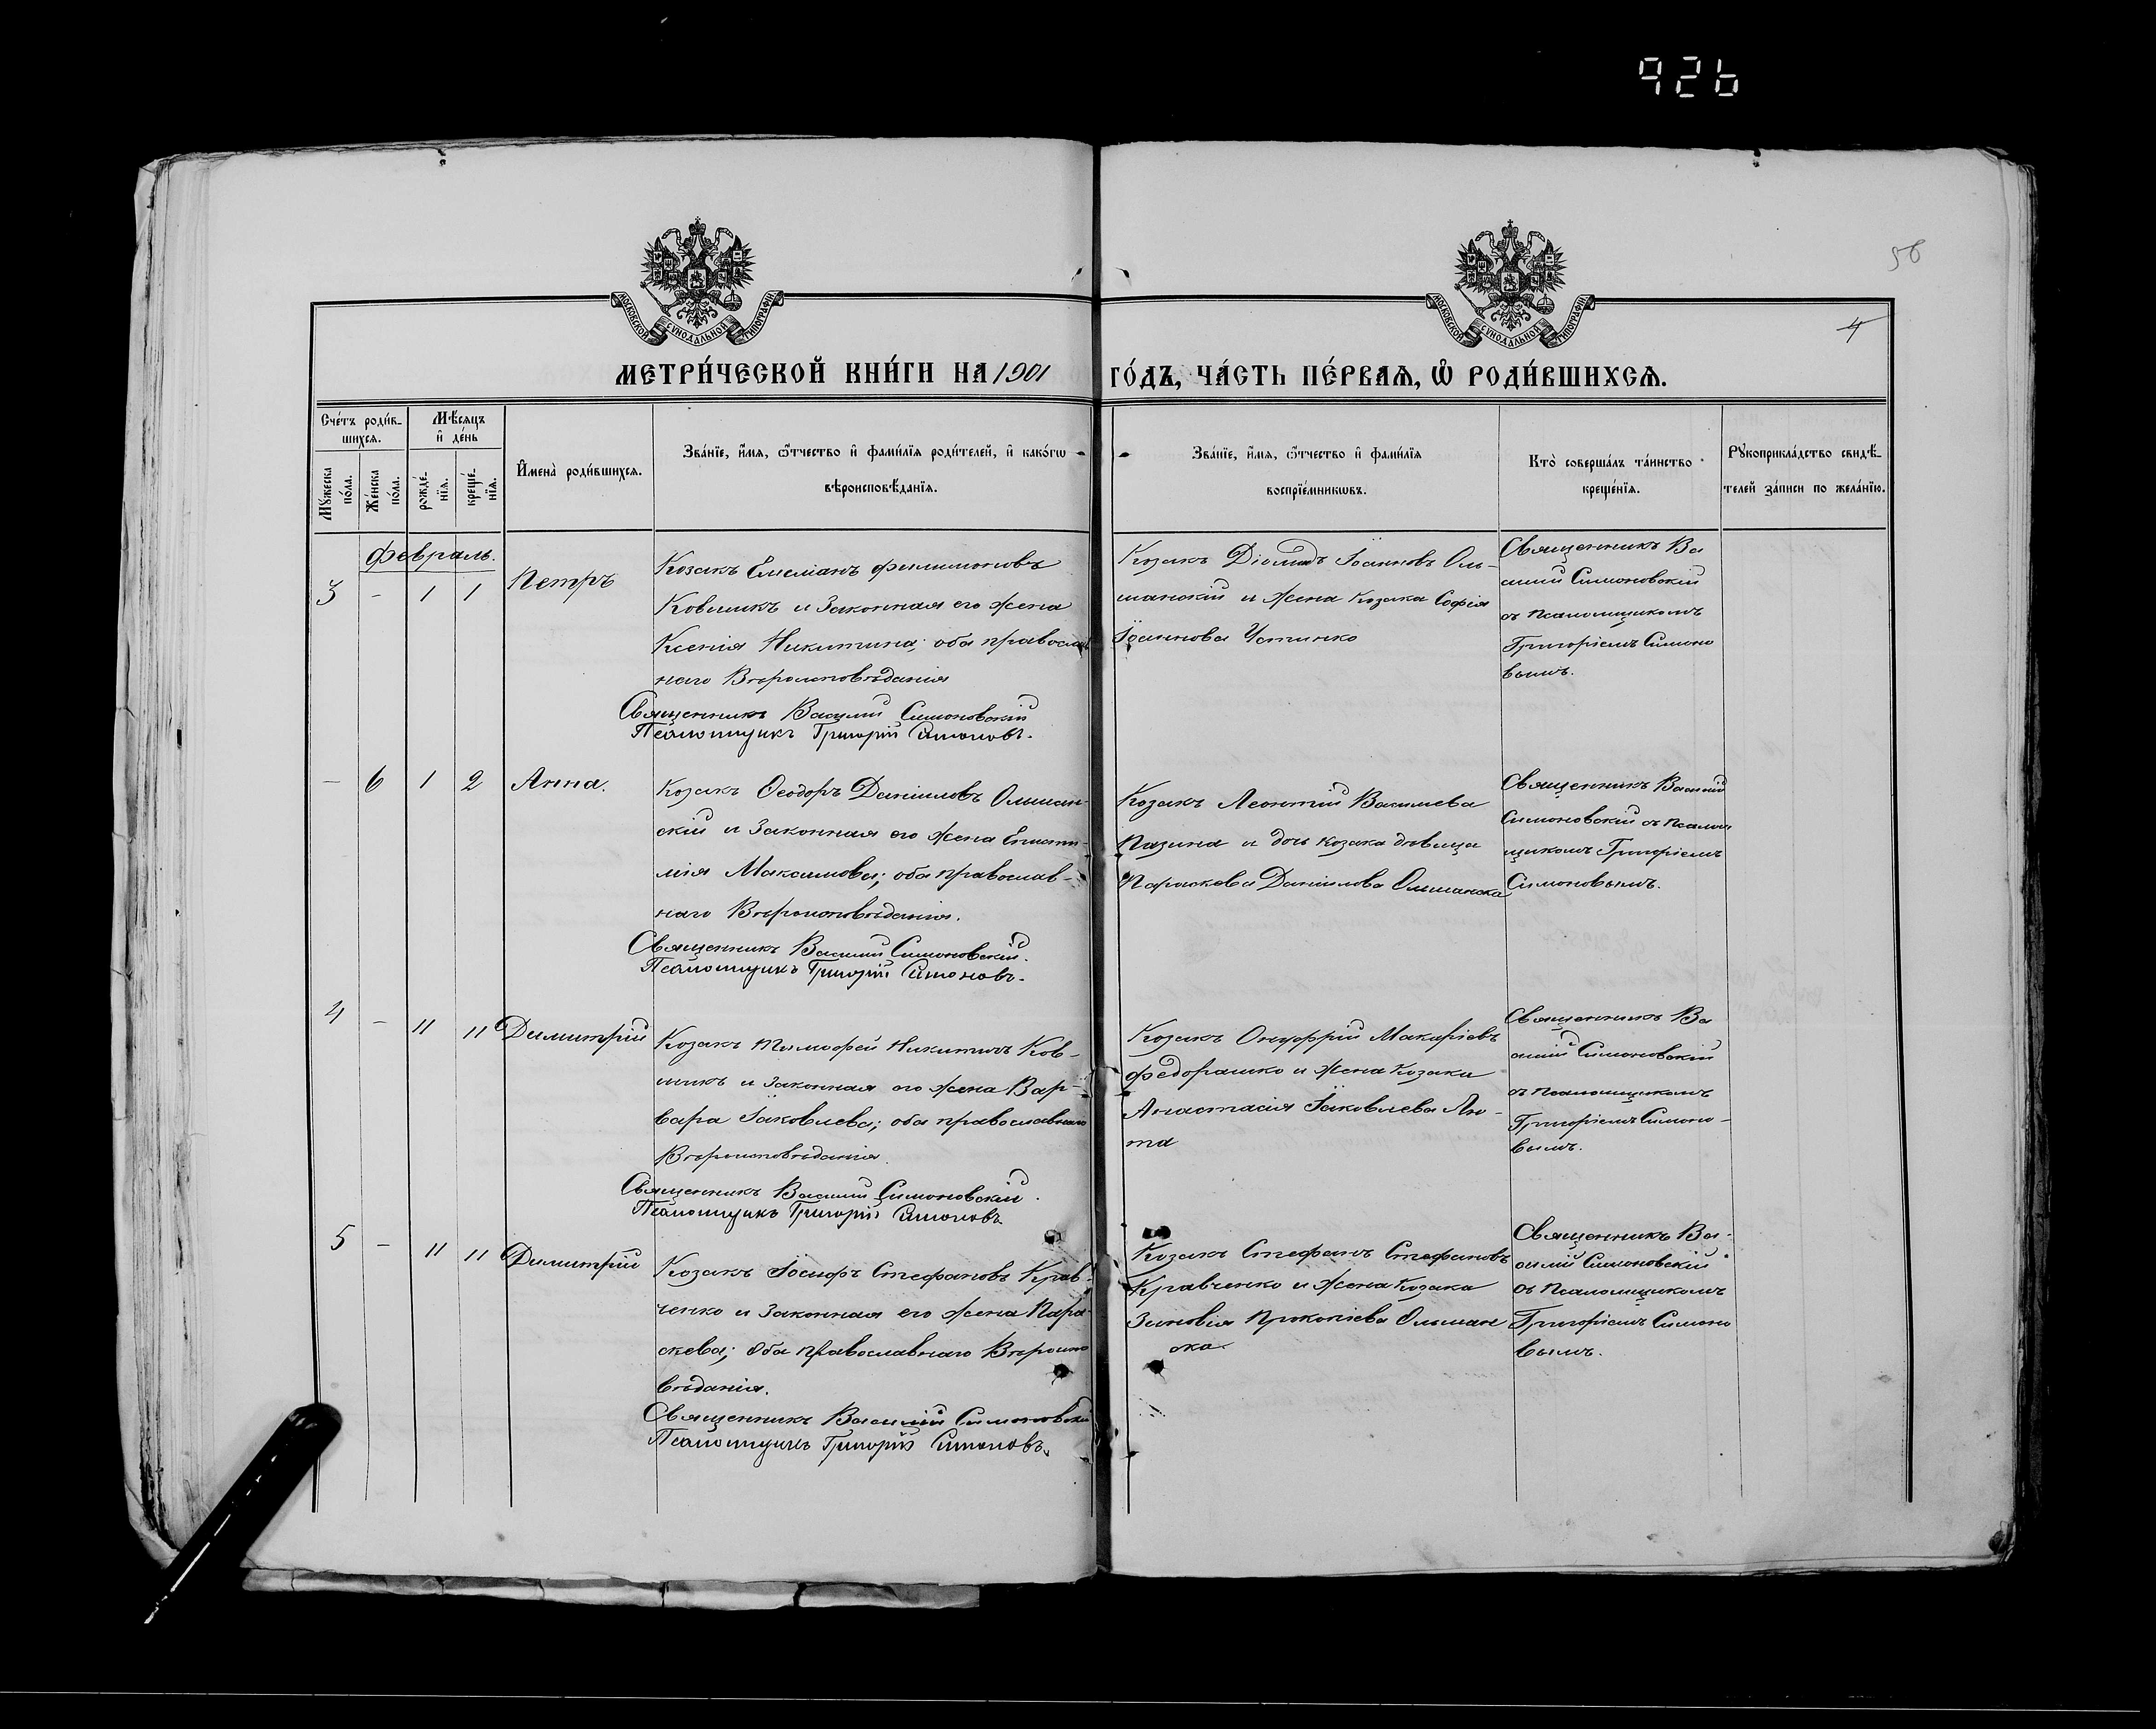 926
56
4
МОСКОВСКОЙ СУНОДАЛЬНОЙ ТИПОГРАФІИ
МОСКОВСКОЙ СУНОДАЛЬНОЙ ТИПОГРАФІИ
МЕТРИ́ЧЕСКОЙ КНИ́ГИ НА 1901 ГО́ДЪ, ЧА́СТЬ ПЕ́РВАѦ, Ѡ РОДИ́ВШИХСѦ.
Сче́тъ роди́в-
шихся.
Мѣ́сяцъ
и҆ де́нь
Мꙋжеска
по́ла.
Же́нска
по́ла.
рожде́-
нїя.
креще́-
нїя.
И҆мена̀ роди́вшихся.
Зва́нїе, и҆́мя, ѻ҆́тчество и҆ фами́лїя роди́телей, и҆ како́гѡ
вѣроисповѣ́данїя.
Зва́нїе, и҆́мя, ѻ҆́тчество и҆ фами́лїя
воспрїе́мникѡвъ.
Кто̀ соверша́лъ та́инство
креще́нїя.
Рꙋкоприкла́дство свидѣ́-
телей за́писи по жела́нїю.
Февраль.
3 - 1 1 Петръ
Козакъ Емеліанъ Филимоновъ
Ковшикъ и Законная его жена
Ксенія Никитина; оба православ
наго Вѣроисповѣданія
Священникъ Василій Симоновскій
Псаломщикъ Григорій Симоновъ.
Козакъ Діомидъ Іоанновъ Оль-
шанскій и жена Козака Софія
Іоаннова Устинко
Священникъ Ва
силій Симоновскій
съ псаломщикомъ
Григоріемъ Симоно
вымъ.
- 6 1 2 Анна.
Козакъ Ѳеодоръ Даніиловъ Ольшан-
скій и Законная его жена Еписти-
мія Максимова; оба православ-
наго Вѣроисповѣданія.
Священникъ Василій Симоновскій.
Псаломщикъ Григорій Симоновъ.
Козакъ Леонтій Васильева
и дочь козака дѣвица
Параскева Даніилова Ольшанска
Священникъ Василій
Симоновскій съ псалом
щикомъ Григоріемъ
Симоновымъ.
4 - 11 11 Димитрій
Козакъ Тимофей Никитинъ Ков-
шикъ и Законная его жена Вар-
вара Іаковлева; оба православнаго
Вѣроисповѣданія.
Священникъ Василій Симоновскій.
Псаломщикъ Григорій Симоновъ.
Козакъ Онуфрій Макаріевъ
Федорашко и жена Козака
Анастасія Іаковлева Лю-
та
Священникъ Ва
силій Симоновскій
съ псаломщикомъ
Григоріемъ Симоно-
вымъ.
5 - 11 11 Димитрій
Козакъ Іосифъ Стефановъ Крав-
ченко и Законная его жена Пара-
скева; Оба православнаго Вѣроиспо
вѣданія.
Священникъ Василій Симоновскій
Псаломщикъ Григорій Симоновъ.
Козакъ Стефанъ Стефановъ
Кравченко и жена Козака
Зиновія Прокопіева Ольшан
ска.
Священникъ Ва-
силій Симоновскій
съ Псаломщикомъ
Григоріемъ Симоно
вымъ.